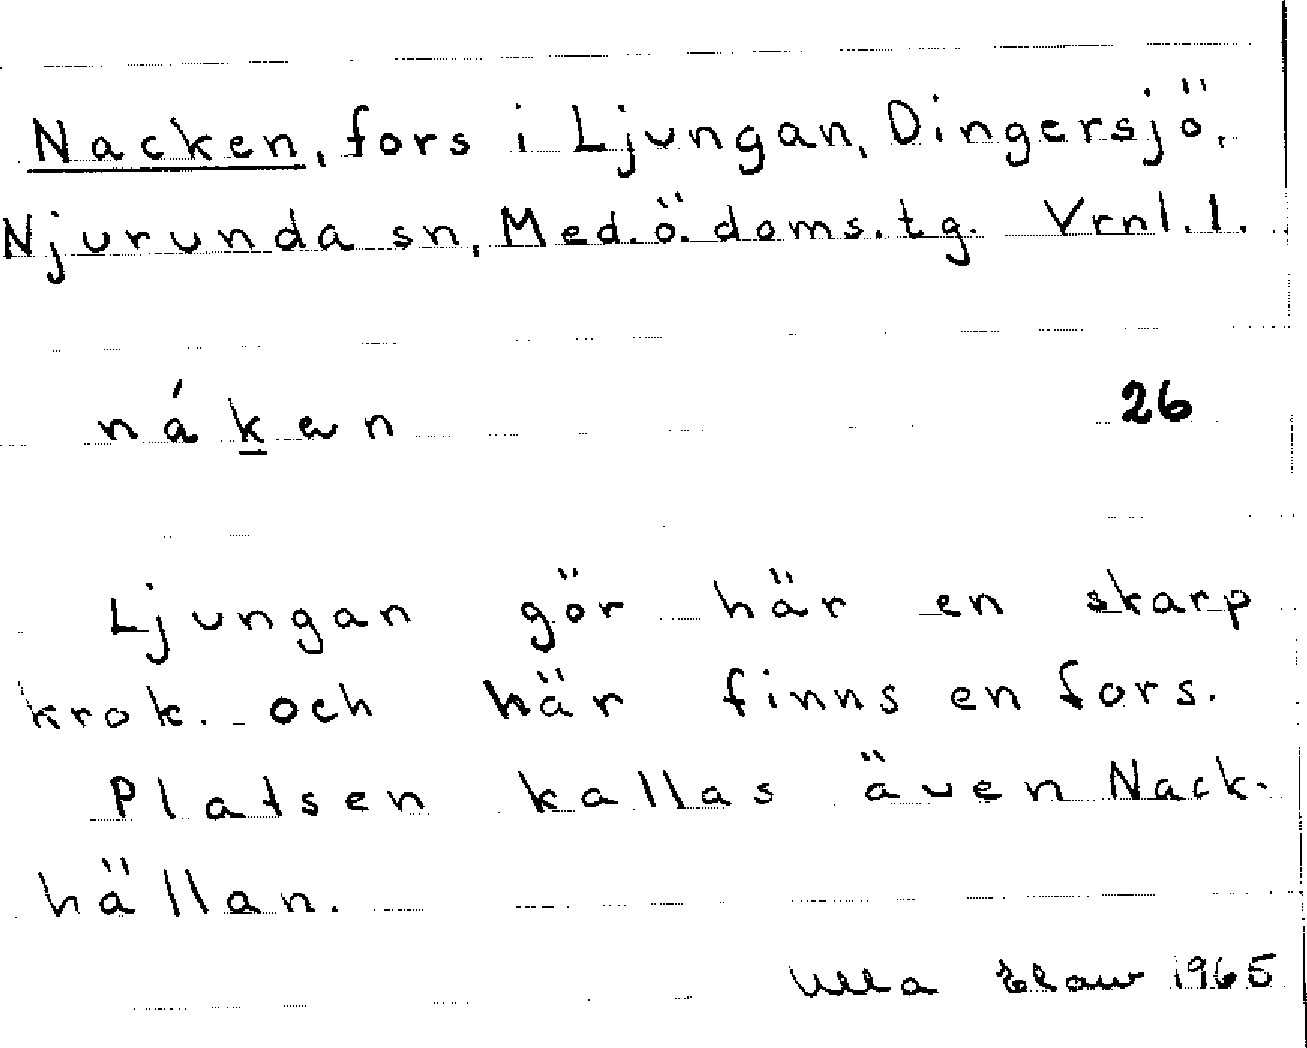 Nacken, fors i Ljungan, Dingersjö,
Njurunda sn, Med. ö. doms. tg. Vrnl. l.
náken 26
Ljungan gör här en skarp
krok. och här finns en fors.
Platsen kallas även Nack-
hällan.
Ulla 1965